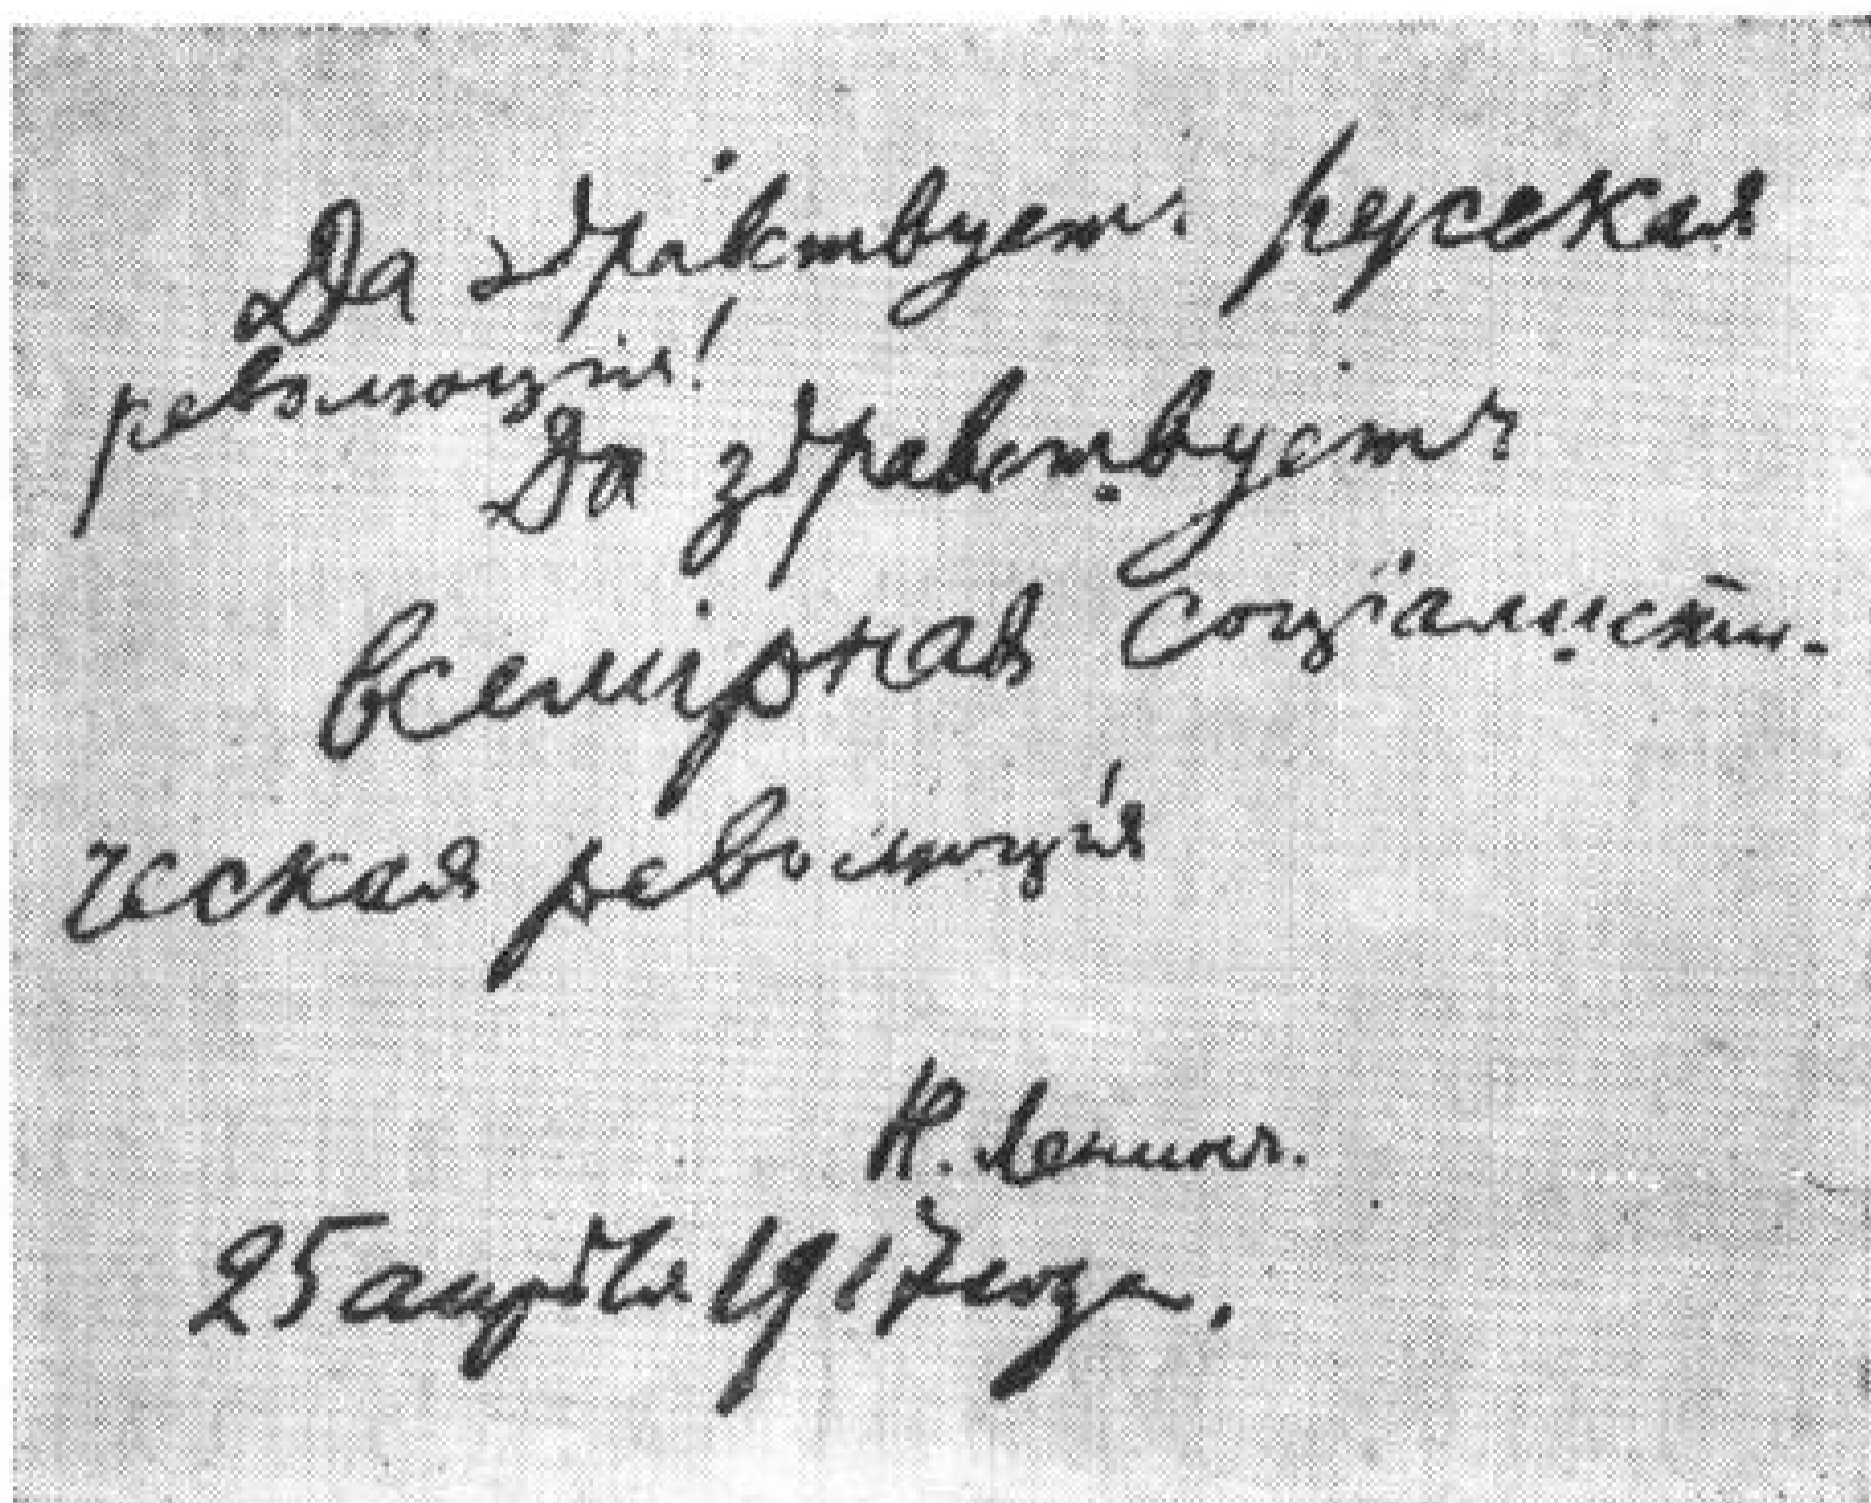 Да здравствуетъ русская
революція!
Да здравствуетъ
всемірная соціалисти-
ческая революція
Н. Ленинъ.
25 апрѣля 1917 года.